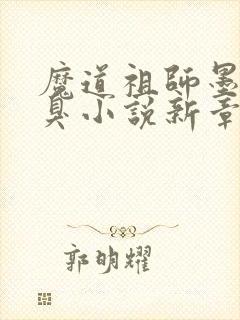 魔道祖師墨
臭小説新章
郭明耀